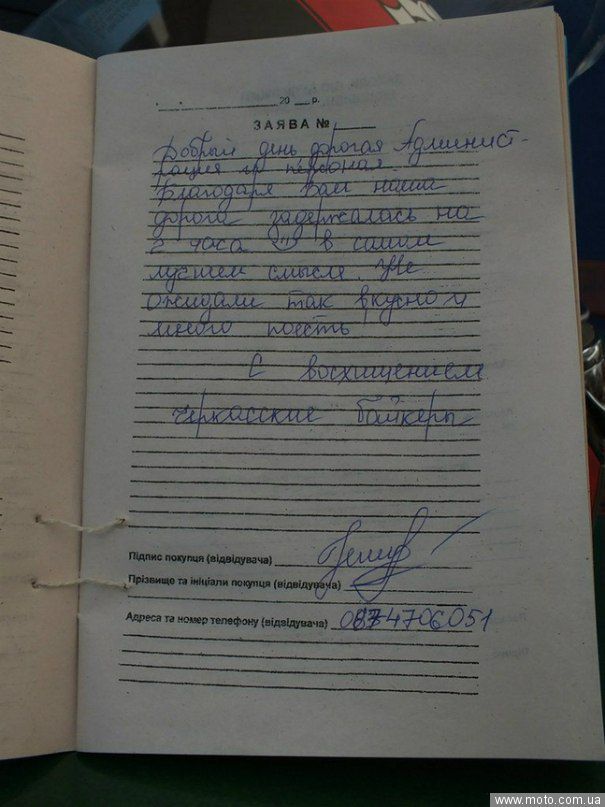 20 р.
ЗАЯВА №
Добрый день дорогая Админист-
рация и персонал.
Благодаря Вам наша
дорога задержалась на
2 часа в самом
лучшем смысле. Не
ожидали так вкусно и
много поесть
С восхищением
черкасские байкеры
Підпис покупця (відвідувача)
Прізвище та ініціали покупця (відвідувача)
Адреса та номер телефону (відвідувача) 0874706051
www.moto.com.ua